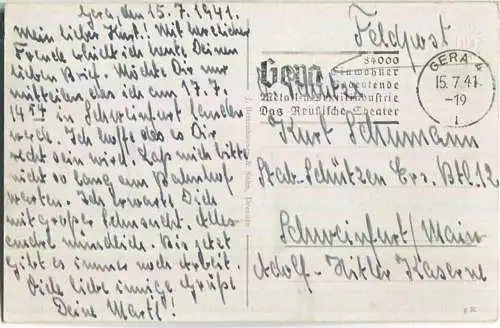 Gera, den 15.7.1941.
Mein lieber Kurt! Mit herzlicher
Freude erhielt ich heute Deinen
lieben Brief. Möchte Dir nur
mitteilen das ich am 17.7.
14 57 in Schweinfurt landen
werde. Ich hoffe das es Dir
recht sein wird. Laß mich bitte
nicht so lang am Bahnhof
warten. Ich erwarte Dich
mit großer Sehnsucht. Alles
andre mündlich. Bis jetzt
gibt es immer noch Arbeit.
Viele liebe innige Grüße
Deine Martl!
Feldpost
Gera
84000
Einwohner
bedeutende
Metall- u. Textilindustrie
Das Reußische Theater
GERA 4
15.7.41
-19
Kurt Schumann
Stab-Schützen Ers. Btl. 12
Schweinfurt/Main
Adolf-Hitler Kaserne